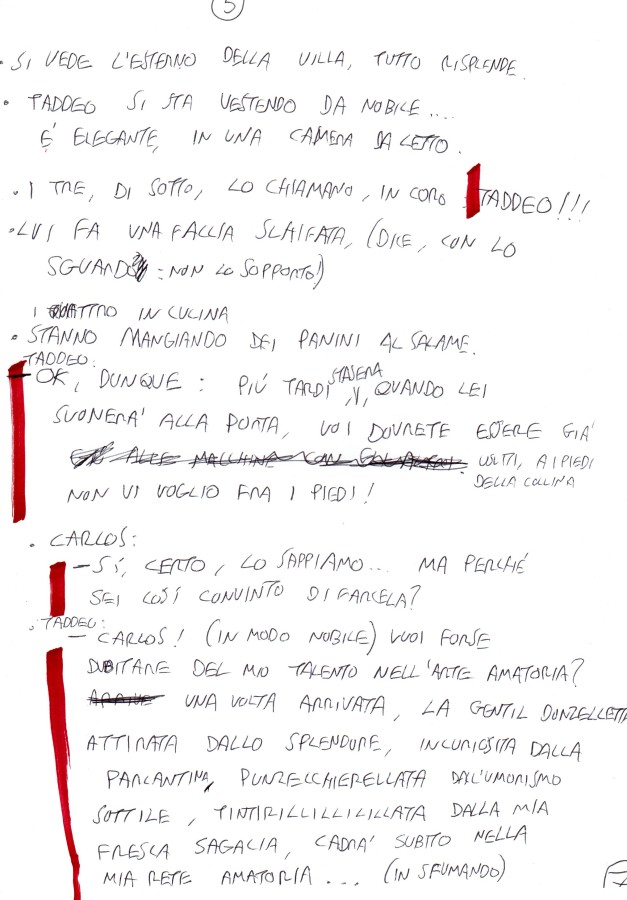 5
• SI VEDE L'ESTERNO DELLA VILLA, TUTTO RISPLENDE.
• TADDEO SI STA VESTENDO DA NOBILE....
E' ELEGANTE, IN UNA CAMERA DA LETTO.
• I TRE, DI SOTTO, LO CHIAMANO, IN CORO: TADDEO!!!
• LUI FA UNA FACCIA SCHIFATA, (DICE, CON LO
SGUARDO: NON LO SOPPORTO!)
I QUATTRO IN CUCINA
• STANNO MANGIANDO DEI PANINI AL SALAME.
TADDEO:
- OK, DUNQUE: PIÚ TARDI STASERA, QUANDO LEI
SUONERA' ALLA PORTA, VOI DOVRETE ESSERE GIA'
VOLTI, AI PIEDI
DELLA COLLINA
NON VI VOGLIO FRA I PIEDI!
• CARLOS:
- SÍ, CERTO, LO SAPPIAMO... MA PERCHÉ
SEI COSÍ CONVINTO DI FARCELA?
• TADDEO:
- CARLOS! (IN MODO NOBILE) VUOI FORSE
DUBITARE DEL MIO TALENTO NELL'ARTE AMATORIA?
UNA VOLTA ARRIVATA, LA GENTIL DONZELLETTA
ATTIRATA DALLO SPLENDORE, INCURIOSITA DALLA
PARLANTINA, PUNZECCHIERELLATA DALL'UMORISMO
SOTTILE, TINTIRILLILLILILLATA DALLA MIA
FRESCA SAGACIA, CADRA' SUBITO NELLA
MIA RETE AMATORIA... (IN SFUMANDO)